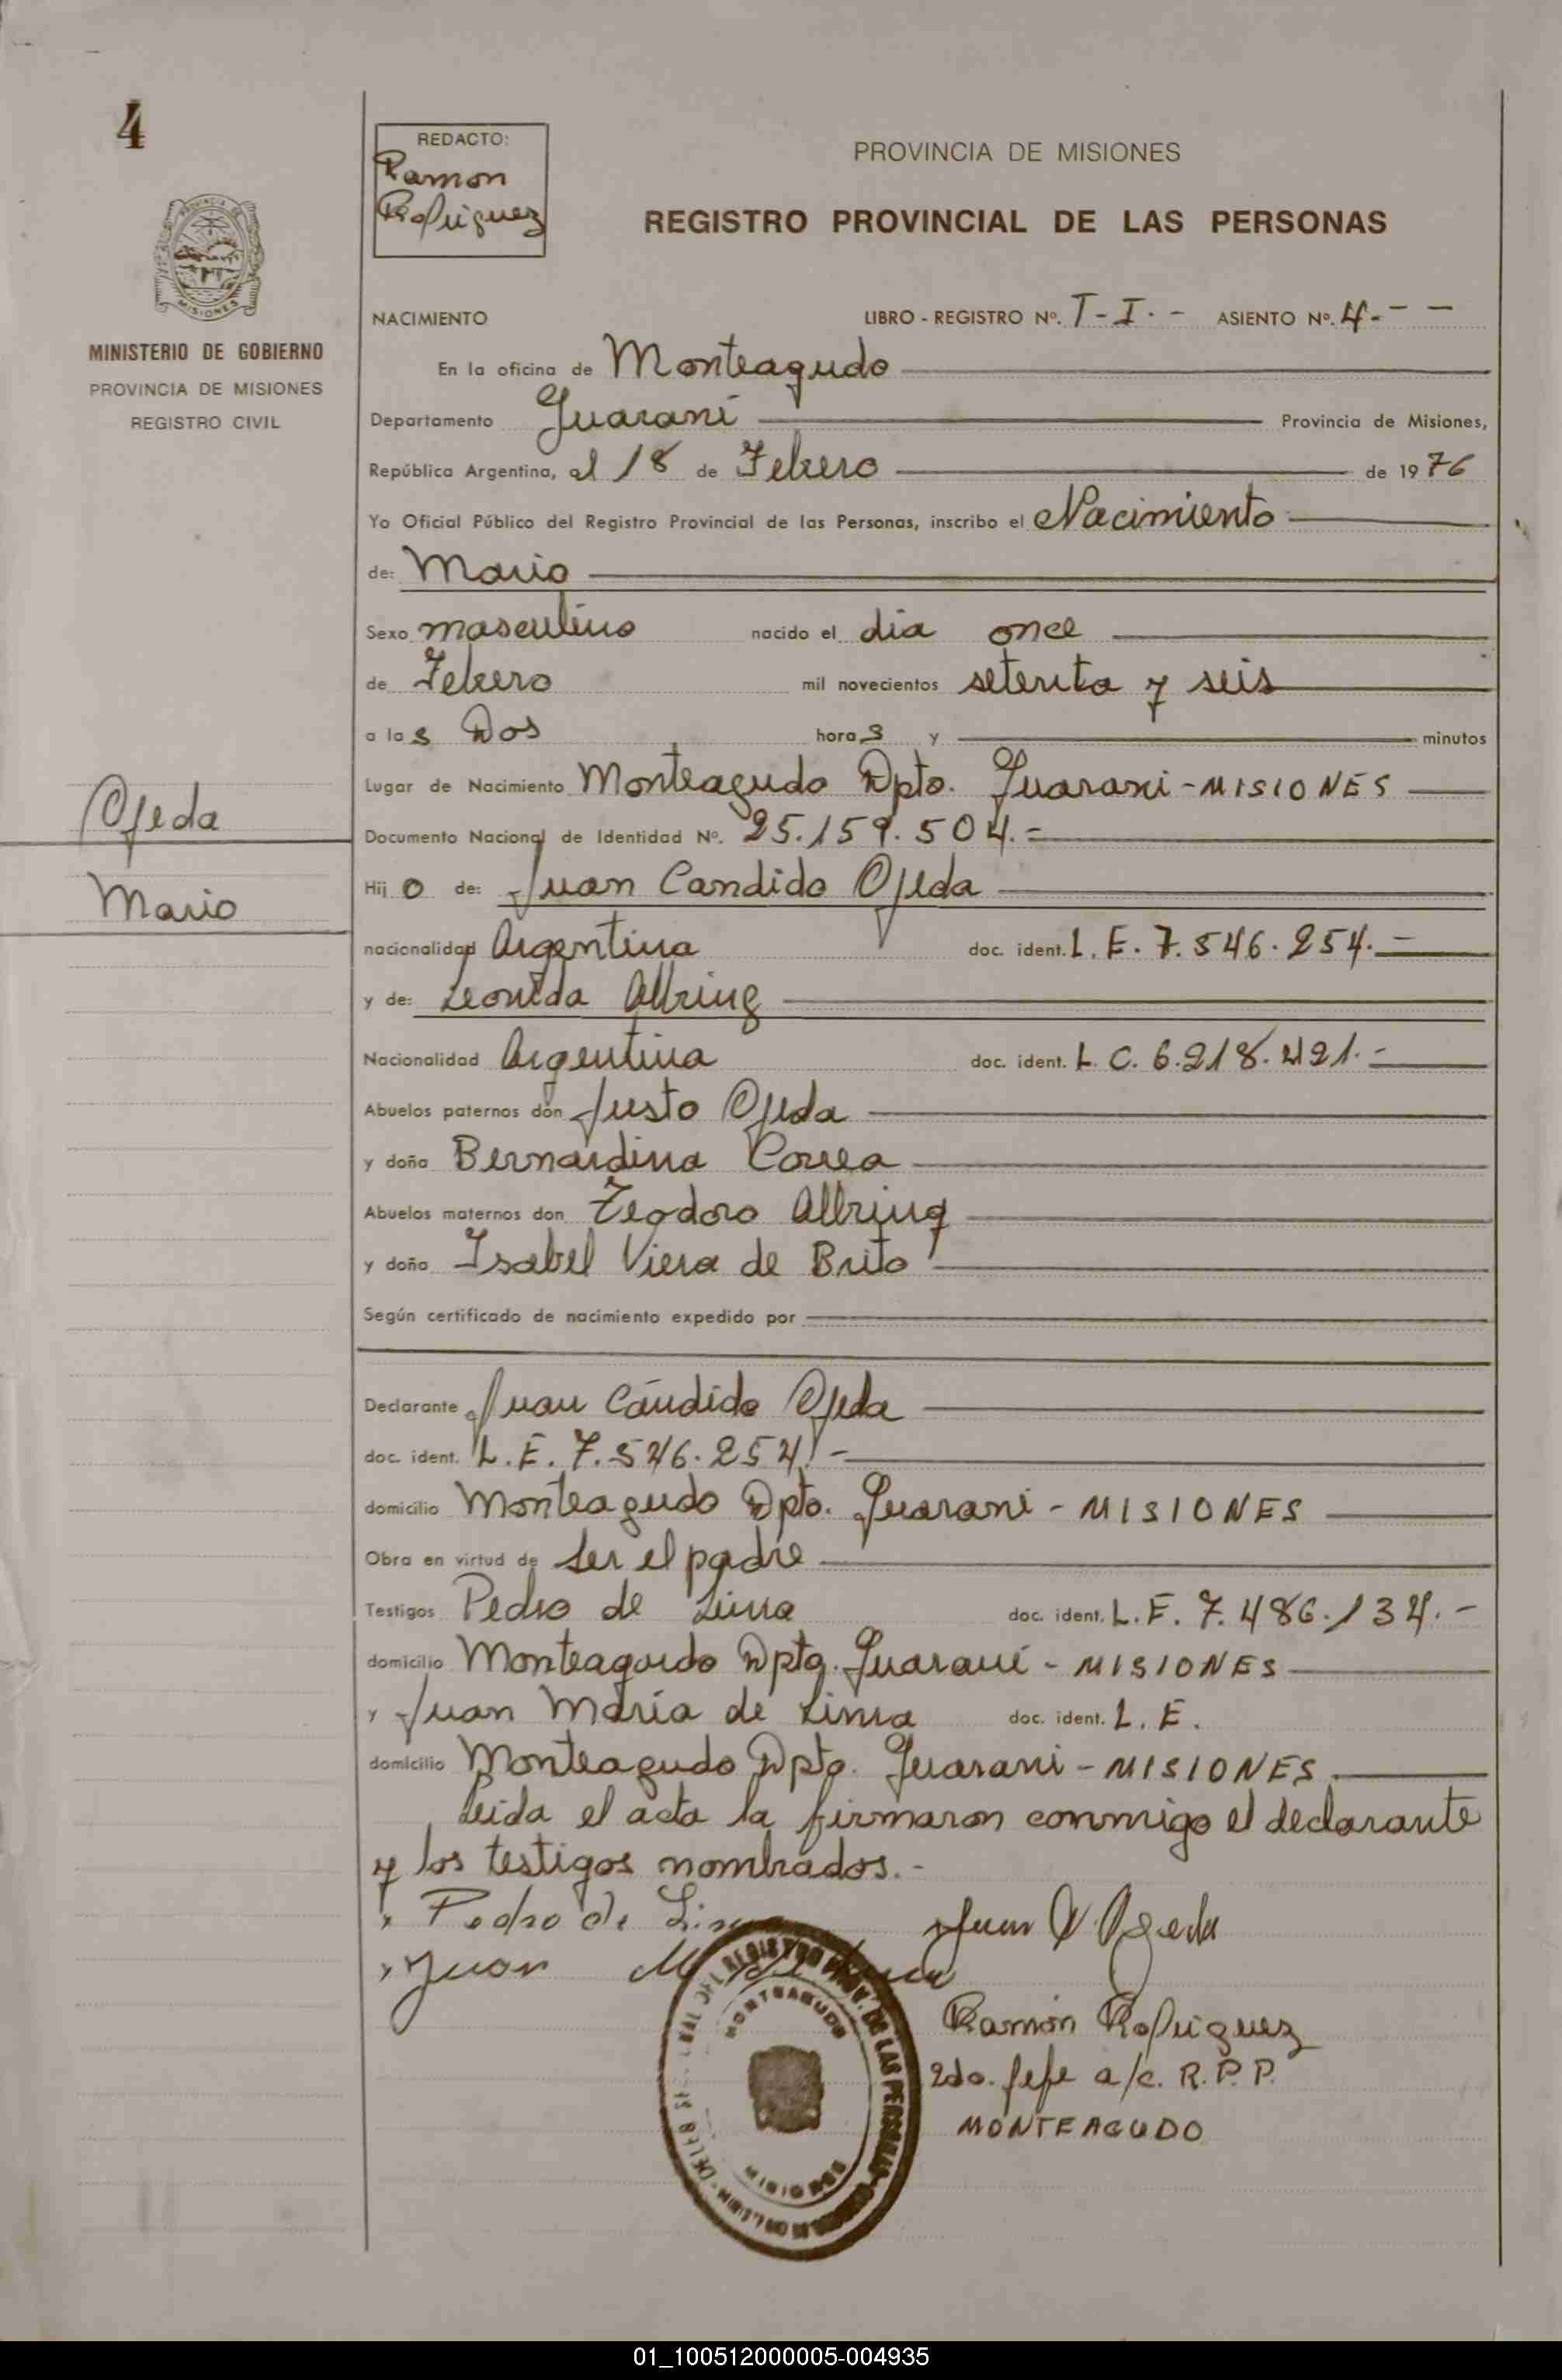 4
REDACTO:
Ramon
Rodriguez
PROVINCIA DE MISIONES
REGISTRO PROVINCIAL DE LAS PERSONAS
MINISTERIO DE GOBIERNO
PROVINCIA DE MISIONES
REGISTRO CIVIL
NACIMIENTO LIBRO - REGISTRO Nº. T-I.- ASIENTO Nº. 4.- -
En la oficina de Monteagudo
Departamento Guarani Provincia de Misiones,
República Argentina, al 18 de Febrero de 1976
Yo Oficial Público del Registro Provincial de las Personas, inscribo el Nacimiento
de: Mario
Sexo masculino nacido el dia once
de Febrero mil novecientos setenta y seis
a las Dos horas y minutos
Lugar de Nacimiento Monteagudo Dpto. Guarani - MISIONES
Ojeda
Mario
Documento Nacional de Identidad Nº. 25.159.504.-
Hijo de: Juan Candido Ojeda
nacionalidad Argentina doc. ident. L.E. 7.546.254.-
y de: Leonida Allring
Nacionalidad Argentina doc. ident. L.C. 6.218.421.-
Abuelos paternos don Justo Ojeda
y doña Bernardina Correa
Abuelos maternos don Teodoro Allring
y doña Isabel Viera de Brito
Según certificado de nacimiento expedido por
Declarante Juan Cándido Ojeda
doc. ident. L.E. 7.546.254.-
domicilio Monteagudo Dpto. Guarani - MISIONES
Obra en virtud de ser el padre
Testigos Pedro de Lima doc. ident. L.E. 7.486.134.-
domicilio Monteagudo Dpto. Guarani - MISIONES
y Juan María de Lima doc. ident. L.E.
domicilio Monteagudo Dpto. Guarani - MISIONES
Leida el acta la firmaron conmigo el declarante
y los testigos nombrados.-
Pedro de Lima
Juan C. Ojeda
Juan M de Lima
MONTEAGUDO
MISIONES
Ramón Rodriguez
2do. Jefe a/c. R.P.P.
MONTEAGUDO
01_100512000005-004935